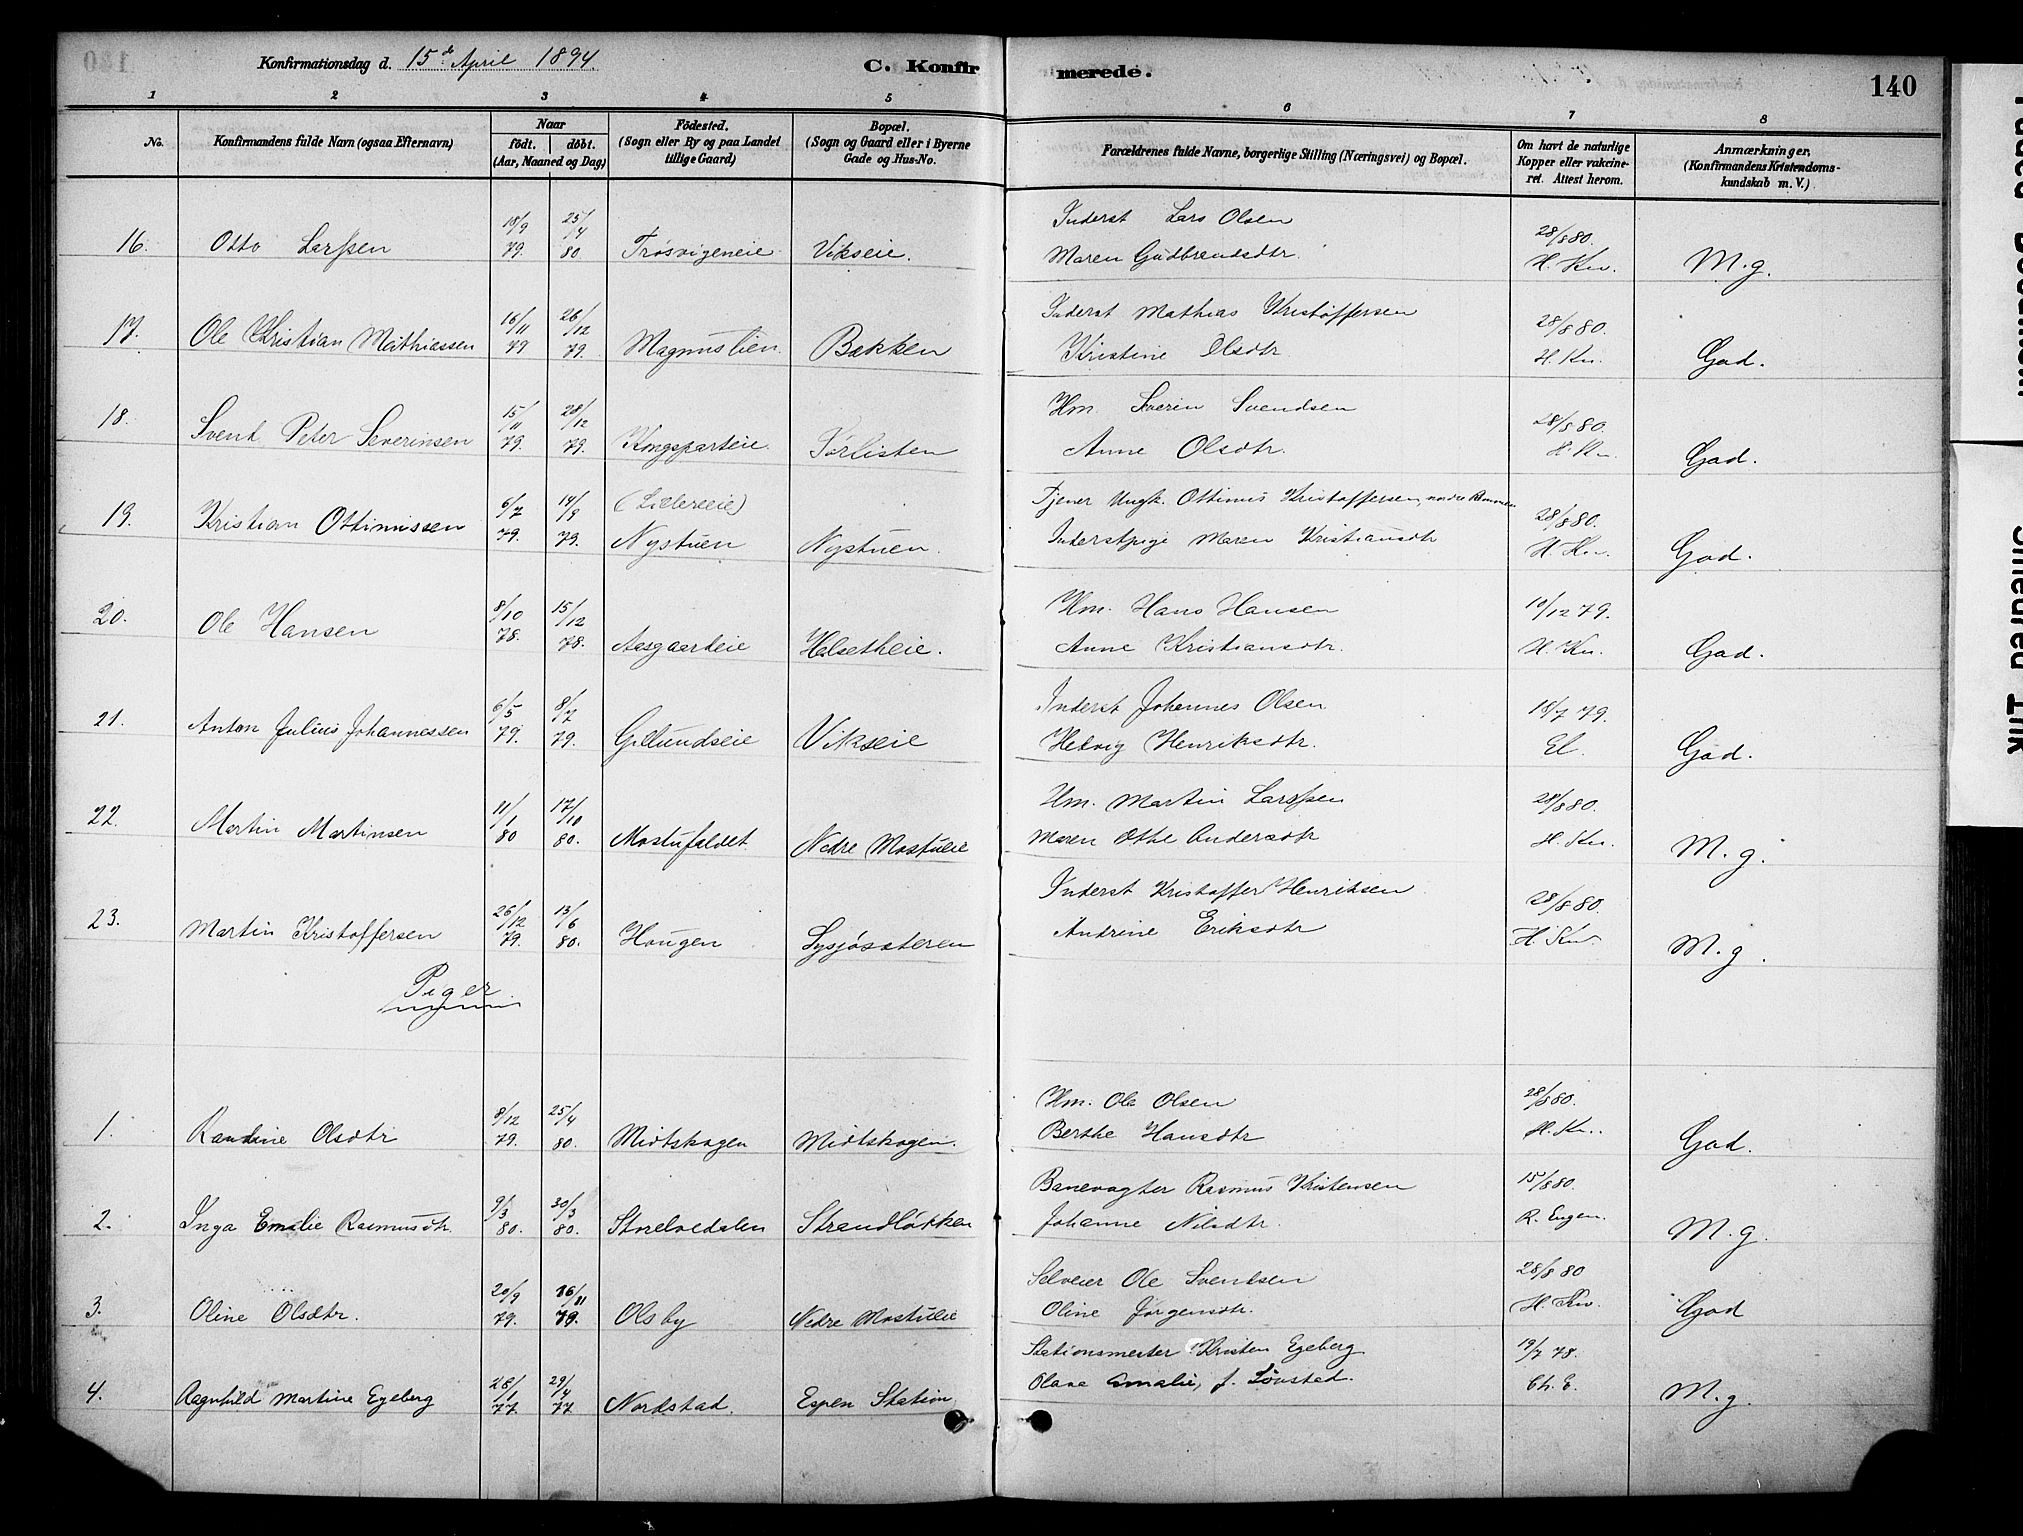 Konfirmationsdag d. 15de April 1894 C. Konfirmerede. 140
1 2 3 4 5 6 7 8
No. Konfirmandens fulde Navn (ogsaa Efternavn) Naar født. døbt. (Aar, Maaned og Dag) Födested. (Sogn eller By og paa Landet tillige Gaard) Bopæl. (Sogn og Gaard eller i Byerne Gade og Hus-No. Forældrenes fulde Navne, borgerlige Stilling (Næringsvei) og Bopæl. Om havt de naturlige Kopper eller vakcineret. Attest herom. Anmærkninger, (Konfirmandens Kristendomskundskab m. V.)
18/9 25/4 Inderst Lars Olsen 28/8 80.
16. Otto Larssen 79. 80. Trøsvigeneie Vikseie. Maren Gudbrandsdtr. H. Kn. M.g.
16/11 26/12 Inderst Mathias Kristoffersen 28/8 80.
17. Ole Christian Mathiassen 79 79. Magnuslien. Bakken Kristine Olsdtr. H. Kn. God.
15/11 28/12 Hm. Severin Svendsen 28/8 80.
18. Svend Peter Severinsen 79. 79. Kongsparteie. Sørlisten Anne Olsdtr. H. Kn. God.
6/7 14/9 (Lillereeie) Tjener Ungk. Ottinus Kristoffersen, nordre 28/8 80.
19. Kristian Ottinussen 79. 79. Nystuen Nystuen. Inderstpige Maren Kristiansdtr H. Kn. God.
8/10 15/12 Hm. Hans Hansen 10/12 79.
20. Ole Hansen 78. 78. Aasgaardeie Helsetheie. Anne Kristiansdtr. H. Kn. God.
6/5 8/7 Inderst Johannes Olsen 18/7 79.
21. Anton Julius Johannessen 79. 79. Gillundseie Vikseie Hedvig Henriksdtr. El. God.
11/1 17/10 Hm. Martin Larssen 28/8 80.
22. Martin Martinsen 80 80. Mostufaldet Nedre Mostueie Maren Othe Andersdtr H. Kn. M.g.
26/12 13/6 Inderst Kristoffer Henriksen 28/8 80.
23. Martin Kristoffersen 79. 80. Hougen Sysjøsæteren Andrine Eriksdtr H. Kn. M.g.
Piger
8/12 25/4 Hm. Ole Olsen 28/8 80.
1. Randine Olsdtr 79. 80. Midtskogen Midtskogen. Berthe Hansdtr H. Kn. God.
9/3 30/3 Banevogter Rasmus Kristensen 15/8 80.
2. Inga Emalie Rasmusdtr. 80. 80. Storelvedalen Strandløkken Johanne Nilsdtr. R. Engen. M.g.
20/9 16/11 Selveier Ole Svendsen 28/8 80
3. Oline Olsdtr. 79. 79. Olsby Nedre Mostueie Oline Jørgensdtr. H. Kn. God
28/1 29/4 Stationsmester Kristen Egeberg 19/7 78.
4. Ragnhild Martine Egeberg 77. 77 Nordstad. Espen Station. Olava Amalie, f. Lønstad. Ch. E. M.g.